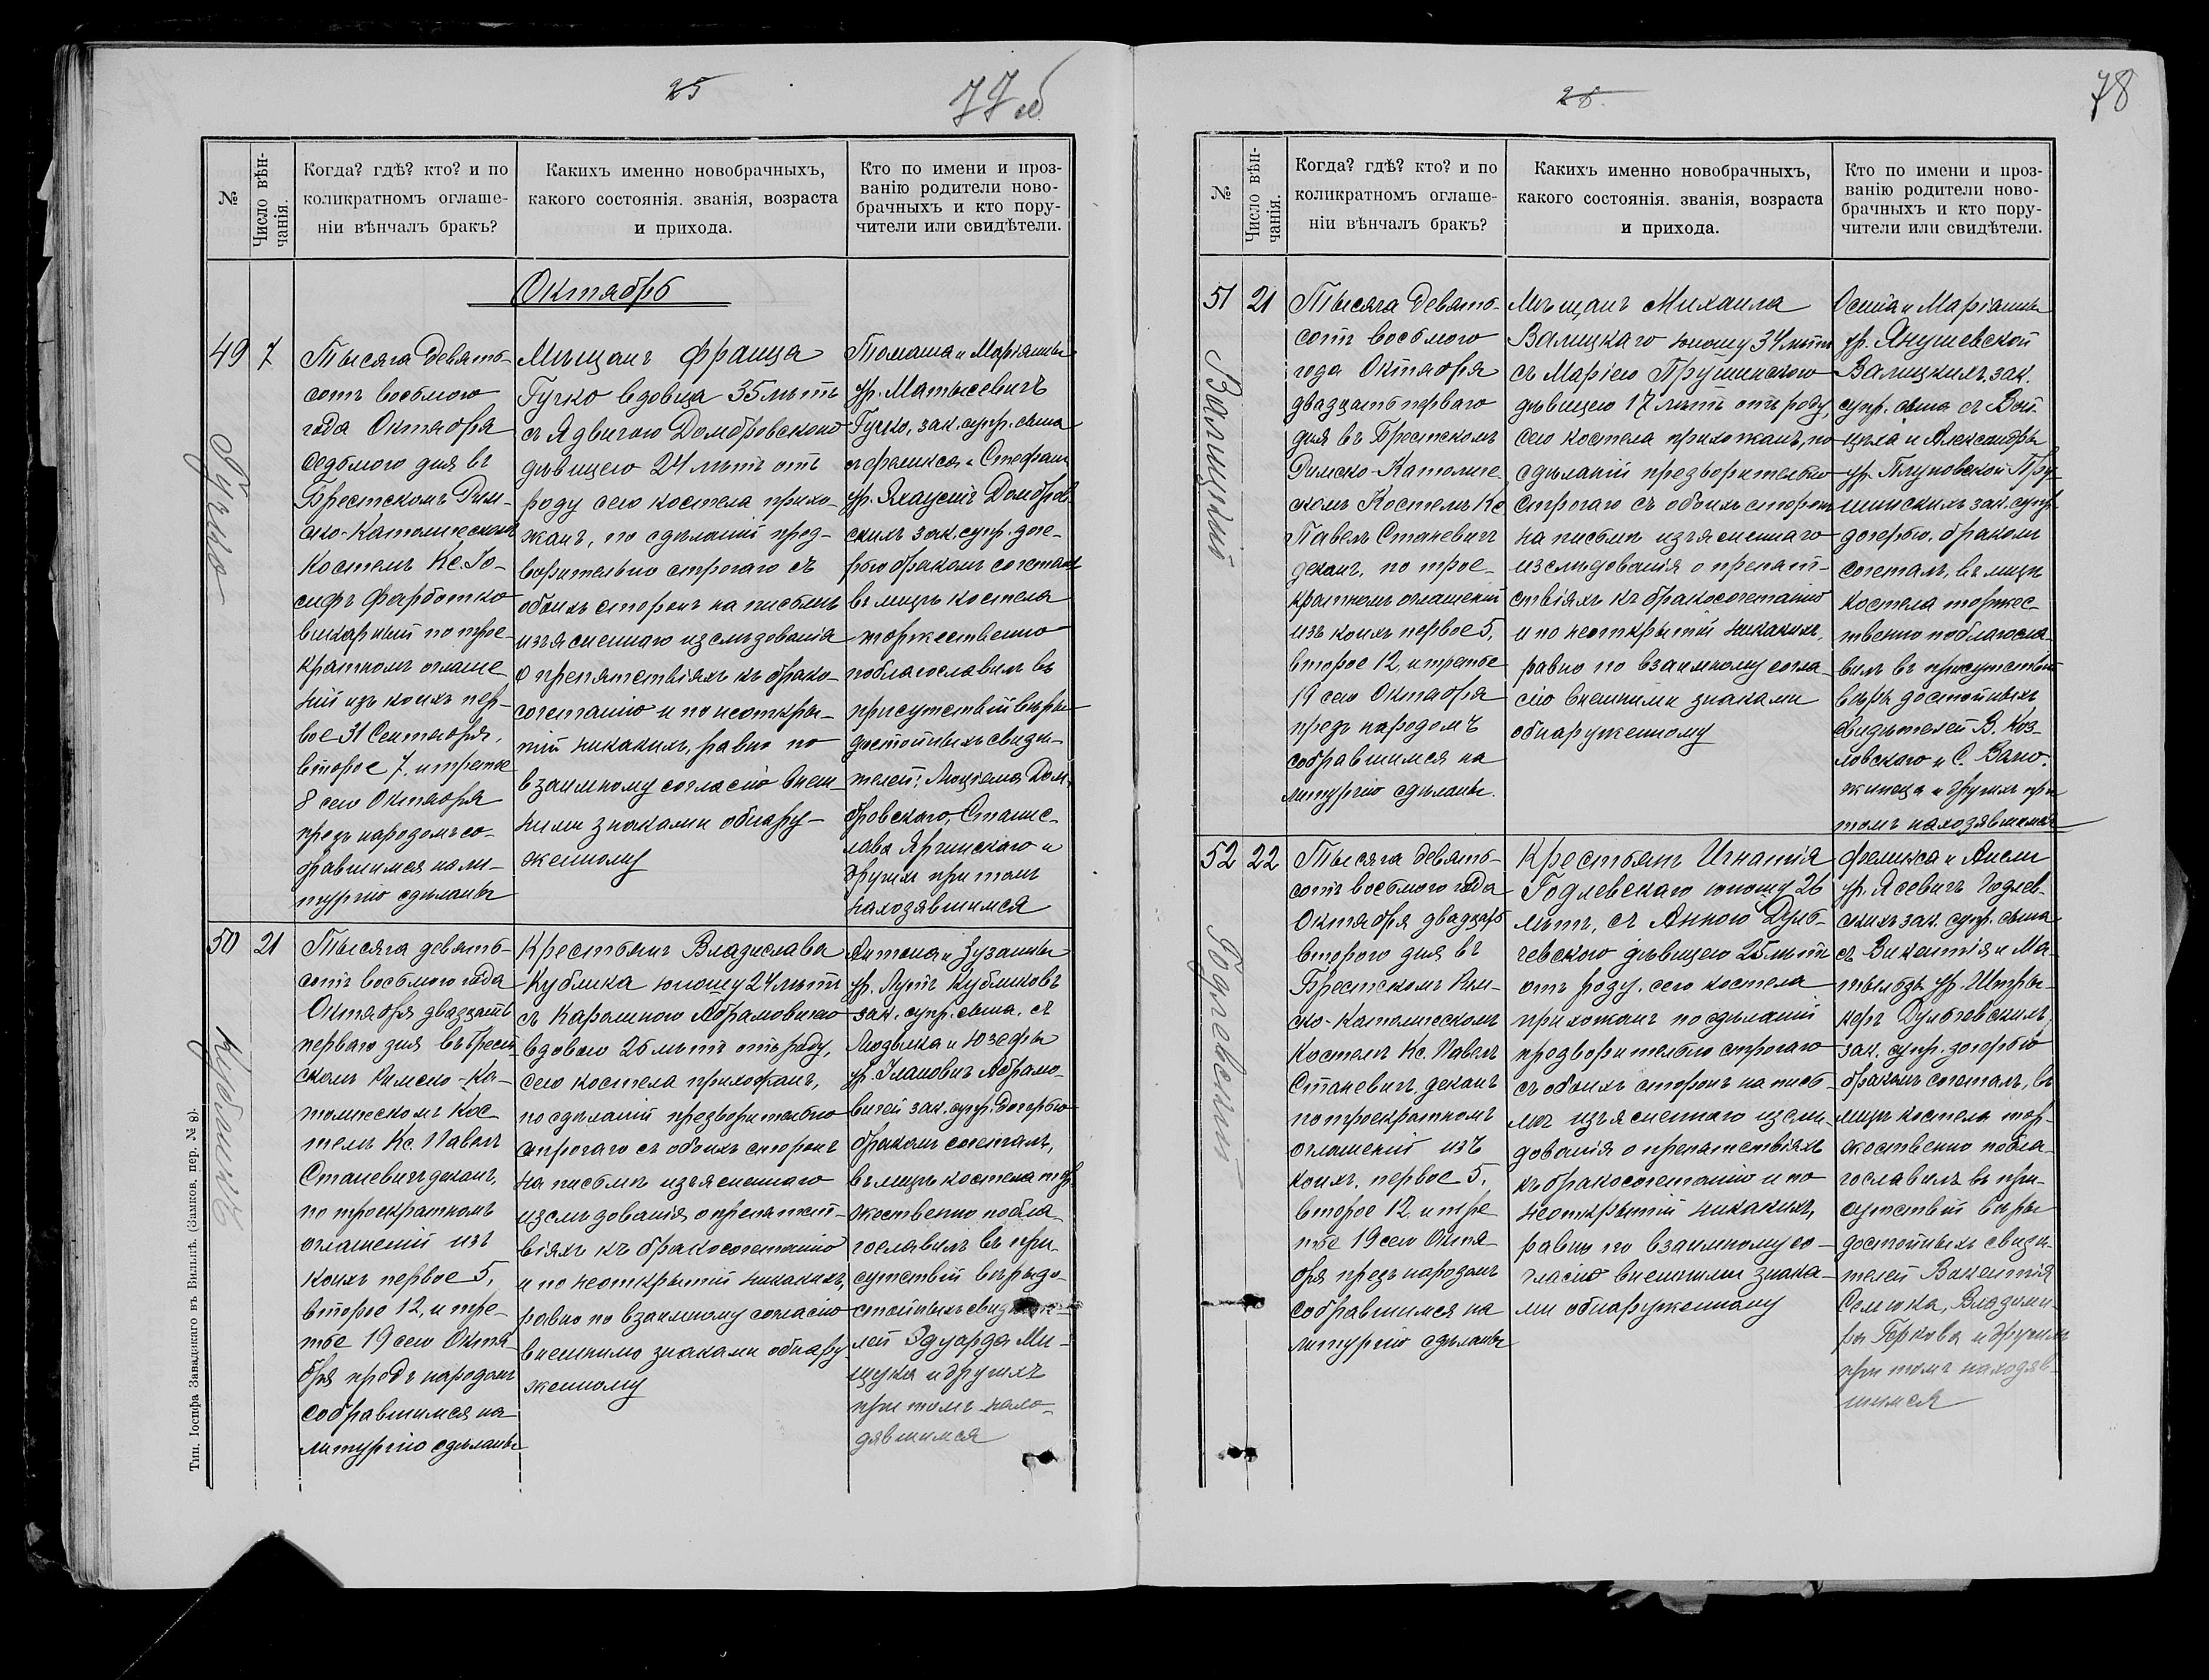 25
77 об
№
Число вѣн-
чанія.
Когда? гдѣ? кто? и по
коликратномъ оглаше-
ніи вѣнчалъ бракъ?
Какихъ именно новобрачныхъ,
какого состоянія. званія, возраста
и прихода.
Кто по имени и проз-
ванію родители ново-
брачныхъ и кто пору-
чители или свидѣтели.
Октябрь
49
7
Гучко
Тысяча девять-
сотъ восьмого
года Октября
седьмого дня въ
Брестскомъ Рим-
ско-Католическомъ
Костелѣ Кс. Іо-
сифъ Фарботко
викарный по трое-
кратномъ оглаше
ніи изъ коихъ пер-
вое 31 Сентября,
второе 7, и третье
8 сего Октября
предъ народомъ со-
бравшимся на ли-
тургію сдѣланы
Мѣщанъ Франца
Гучко вдовца 35 лѣтъ
съ Ядвигою Домбровскою
дѣвицею 24 лѣтъ отъ
роду сего костела прихо-
жанъ, по сдѣланіи пред-
ворительно строгаго съ
обоихъ сторонъ на письмѣ
изъясненнаго изслѣдованія
о препятствіяхъ къ брако-
сочетанію и по неоткры-
тіи никакихъ, равно по
взаимному согласію внеш-
ними знаками обнару-
женному
Томаша и Маріанны
ур. Матысевичъ
Гучко, зак. супр. сына
съ Феликса и Стефаніи
ур. Яхаусцъ Домбров-
скихъ зак. супр. доче-
рью бракомъ сочеталъ
въ лицѣ костела
торжественно
поблагославилъ въ
присутствіи вѣры
достойныхъ свидѣ-
телей: Люціяна Дом-
бровскаго, Станис-
лава Ярчинскаго и
другихъ при томъ
находявшимся
50
21
Кубликъ
Тысяча девять-
сотъ восьмого года
Октября двадцать
перваго дня въ Брест
скомъ Римско-Ка-
толическомъ Кос-
телѣ Кс. Павелъ
Станевичъ деканъ,
по троекратномъ
оглашеніи изъ
коихъ первое 5,
второе 12, и тре-
тье 19 сего Октя
бря предъ народомъ
собравшимся на
литургію сдѣланы
Крестьянъ Владислава
Кублика юношу 24 лѣтъ
съ Каролиною Абрамовичъ
вдовою 26 лѣтъ отъ роду,
сего костела прихожанъ,
по сдѣланіи предворительно
строгаго съ обоихъ сторонъ
на письмѣ изъясненнаго
изслѣдованія о препятст-
віяхъ къ бракосочетанію
и по неоткрытіи никакихъ,
равно по взаимному согласію
внешнимо знаками обнару
женному
Антона и Зузанны
ур. Лутъ Кубликовъ
зак. супр. сына, съ
Людвика и Юзефы
ур. Улановичъ Абрамо-
вичей зак. супр. дочерью
бракомъ сочеталъ,
въ лицѣ костела тор
жественно побла-
гославилъ въ при-
сутствіи вѣры до-
стойныхъ свидѣте-
лей Эдуарда Ми-
щука и другихъ
при томъ нахо-
дявшимся
Тип. Іосифа Завадскаго въ Вильнѣ. (Замков. пер. № 8).
26.
78
№
Число вѣн-
чанія.
Когда? гдѣ? кто? и по
коликратномъ оглаше-
ніи вѣнчалъ бракъ?
Какихъ именно новобрачныхъ,
какого состоянія. званія, возраста
и прихода.
Кто по имени и проз-
ванію родители ново-
брачныхъ и кто пору-
чители или свидѣтели.
51
21
Валицкій
Тысяча девять-
сотъ восьмого
года Октября
двадцать перваго
дня въ Брестскомъ
Римско-Католиче
скомъ Костелѣ Кс
Павелъ Станевичъ
деканъ, по трое-
кратномъ оглашеніи
изъ коихъ первое 5,
второе 12, и третье
19 сего Октября
предъ народомъ
собравшимся на
литургію сдѣланы.
Мѣщанъ Михаила
Валицкаго юношу 34 лѣтъ
съ Маріею Прушинскою
дѣвицею 17 лѣтъ отъ роду,
сего костела прихожанъ, по
сдѣланіи предворительно
строгаго съ обоихъ сторонъ
на письмѣ изъясненнаго
изслѣдованія о препят-
ствіяхъ къ бракосочетанію
и по неоткрытіи никакихъ,
равно по взаимному согла-
сію внешними знаками
обнаруженному
Осипа и Маріанны
ур. Янушевской
Валицкихъ зак.
супр. сына съ Вой-
цѣха и Александры
ур. Плуновской Пру-
шинскихъ зак. супр.
дочерью, бракомъ
сочеталъ, въ лицѣ
костела торжес-
твенно поблагосла-
вилъ въ присутствіи
вѣры достойныхъ
свидѣтелей В. Коз-
ловскаго и С. Вано-
жинца и другихъ при
томъ находявшимся
52
22
Годлевскій
Тысяча девять-
сотъ восьмого года
Октября двадцать
второго дня въ
Брестскомъ Рим-
ско-Католическомъ
Костелѣ Кс. Павелъ
Станевичъ деканъ
по троекратномъ
оглашеніи изъ
коихъ, первое 5,
второе 12, и тре
тье 19 сего Октя-
бря предъ народомъ
собравшимся на
литургію сдѣланы
Крестьянъ Игнатія
Годлевскаго юношу 26
лѣтъ, съ Анною Дуль-
чевскою дѣвицею 25 лѣтъ
отъ роду, сего костела
прихожанъ по сдѣланіи
предворительно строгаго
съ обоихъ сторонъ на пись-
мѣ изъясненнаго изслѣ-
дованія о препятствіяхъ
къ бракосочетанію и по
неоткрытіи никакихъ,
равно по взаимному со-
гласію внешними знака-
ми обнаруженному
Феликса и Анели
ур. Ясевичъ Годлев-
скихъ зак. супр. сына
съ Викентія и Ма-
тыльды ур. Штры-
керъ Дульчевскихъ,
зак. супр. дочерью
бракомъ сочеталъ, въ
лицѣ костела тор-
жественно побла-
гославилъ въ при-
сутствіи вѣры
достойныхъ свидѣ-
телей Викентія
Семюка, Владими-
ра Геркова и другихъ
при томъ находяв-
шимся